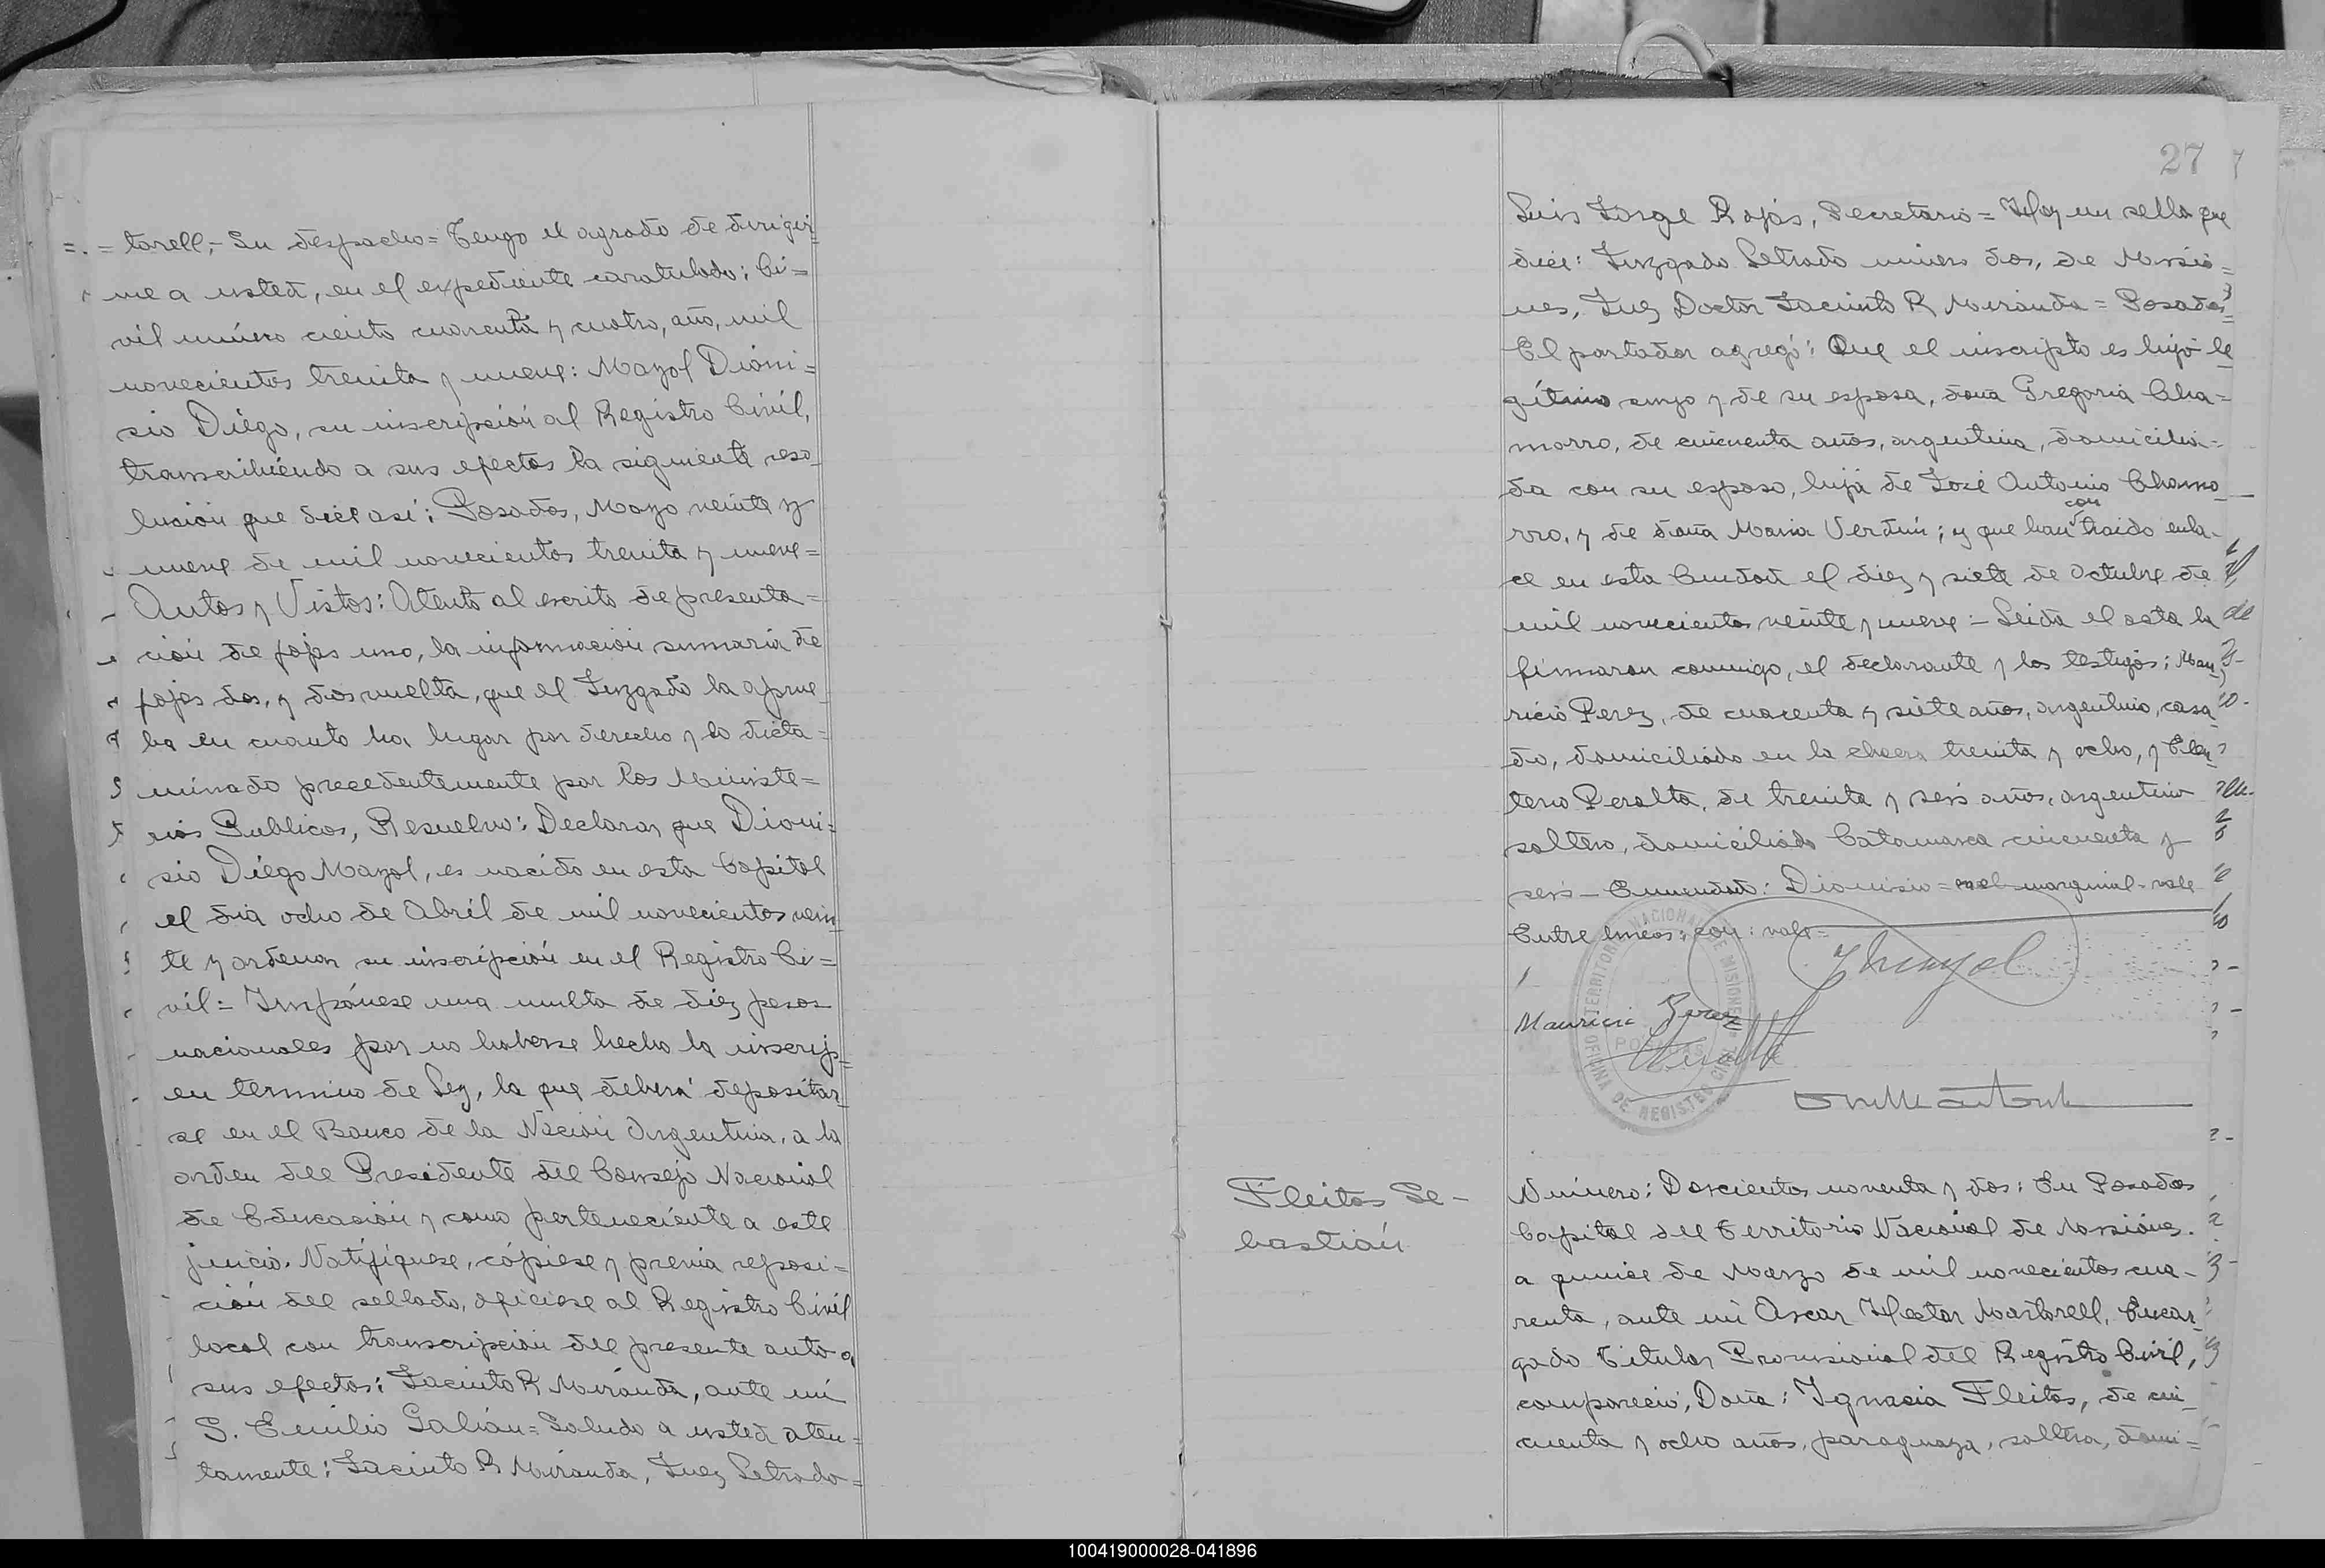 = . = torell,- Su despacho = Tengo el agrado de dirigir
me a usted, en el expediente caratulado: Ci=
vil número ciento cuarenta y cuatro, año, mil
novecientos treinta y nueve: Mayol Dioni=
sio Diégo, su inscripsión al Registro Civil,
transcribiendo a sus efectos la siguiente reso_
lución que dice así: Posadas, Mayo veinte y
nueve de mil novecientos treinta y nueve=
Autos y Vistos: Atento al escrito de presenta=
ción de fojas uno, la información sumaria de
fojas dos, y dos vuelta, que el Juzgado la aprue_
ba en cuanto ha lugar por derecho y lo dicta=
minado precedentemente por los Ministe=
rios Publicos, Resuelvo: Declarar que Dioni=
sio Diégo Mayol, es nacido en esta Capital
el día ocho de Abril de mil novecientos vein_
te y ordenar su inscripción en el Registro Ci=
vil = Impónese una multa de diez pesos
nacionales por no haberse hecho la inscrip_
en termino de Ley, la que deberá depositar_
se en el Banco de la Nación Argentina, a la
orden del Presidente del Consejo Nacional
de Educasión y como perteneciente a este
juicio. Notifíquese, cópiese y previa reposi=
ción del sellado, oficiese al Registro Civil
local con transcripción del presente auto a
sus efectos: Jacinto R Miranda, ante mi
S. Emilio Galián = Saludo a usted aten=
tamente: Jacinto R Miranda, Juez Letrado=
27
Luis Jorge Rojas, Secretario = Hay un sello que
dice: Juzgado Letrado número dos, de Misio=
nes, Juez Doctor Jacinto R Miranda = Posadas=
El portador agregó: Que el inscripto es hijo le
gítimo suyo y de su esposa, doña Gregoria Cha=
morro, de cincuenta años, argentina, domicilia=
da con su esposo, hija de José Antonio Chamo_
rro, y de doña Maria Verdún; y que han traido enla-
con
ce en esta Ciudad el diez y siete de Octubre de
mil novecientos veinte y nueve:- Leida el acta la
firmaron conmigo, el declarante y los testigos: Mau_
ricio Perez, de cuarenta y siete años, argentino, casa
do, domiciliado en la chacra treinta y ocho, y Eleu_
terio Peralta, de treinta y seis años, argentino
soltero, domiciliado Catamarca cincuenta y
seis - Enmendado: Dionisio = en el marginal - vale
Entre lineas: con: vale =
Mauricio Perez
OFICINA DE REGISTRO CIVIL
TERRITORIO NACIONAL DE MISIONES
POSADAS
Fleitas Se-
bastián
Número: Doscientos noventa y dos: En Posadas
Capital del Territorio Nacional de Misiones.
a quince de Marzo de mil novecientos cua-
renta, ante mi Oscar Hector Martorell, Encar_
gado Titular Provisional del Registro Civil,
compareció, Doña: Ignasia Fleitas, de cin_
cuenta y ocho años, paraguaya, soltera, domi=
100419000028-041896